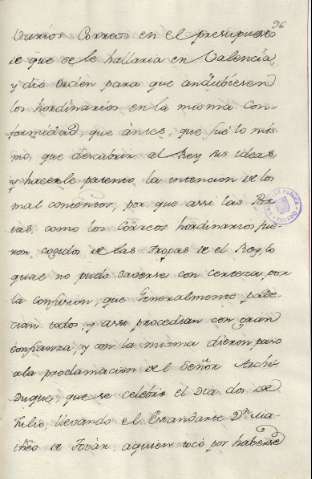 96
Varios Correos en el presupuesto
de que se le hallaria en Valencia,
y dio orden para que anduviesen
los hordinarios en la misma con-
formidad, que antes, que fue lo mis-
mo, que descubrir al Rey sus ideas
y hacerle patente, la intencion de los
mal contentos, por que assi las
como los Correos hordinarios, fue
ron cogidos de las tropas de el Rey, lo
qual no pudo saverse con certeza, por
la confusion, que Generalmente pade-
cian todos y assi procedian con gran
confianza, y con la misma dieron paso
a la proclamacion de el Señor Archi
Duque, que se celebró el Dia dos de
Julio, llevando el Estandarte Dn. Ma-
theo de Tovar, a quien tocó por haberse